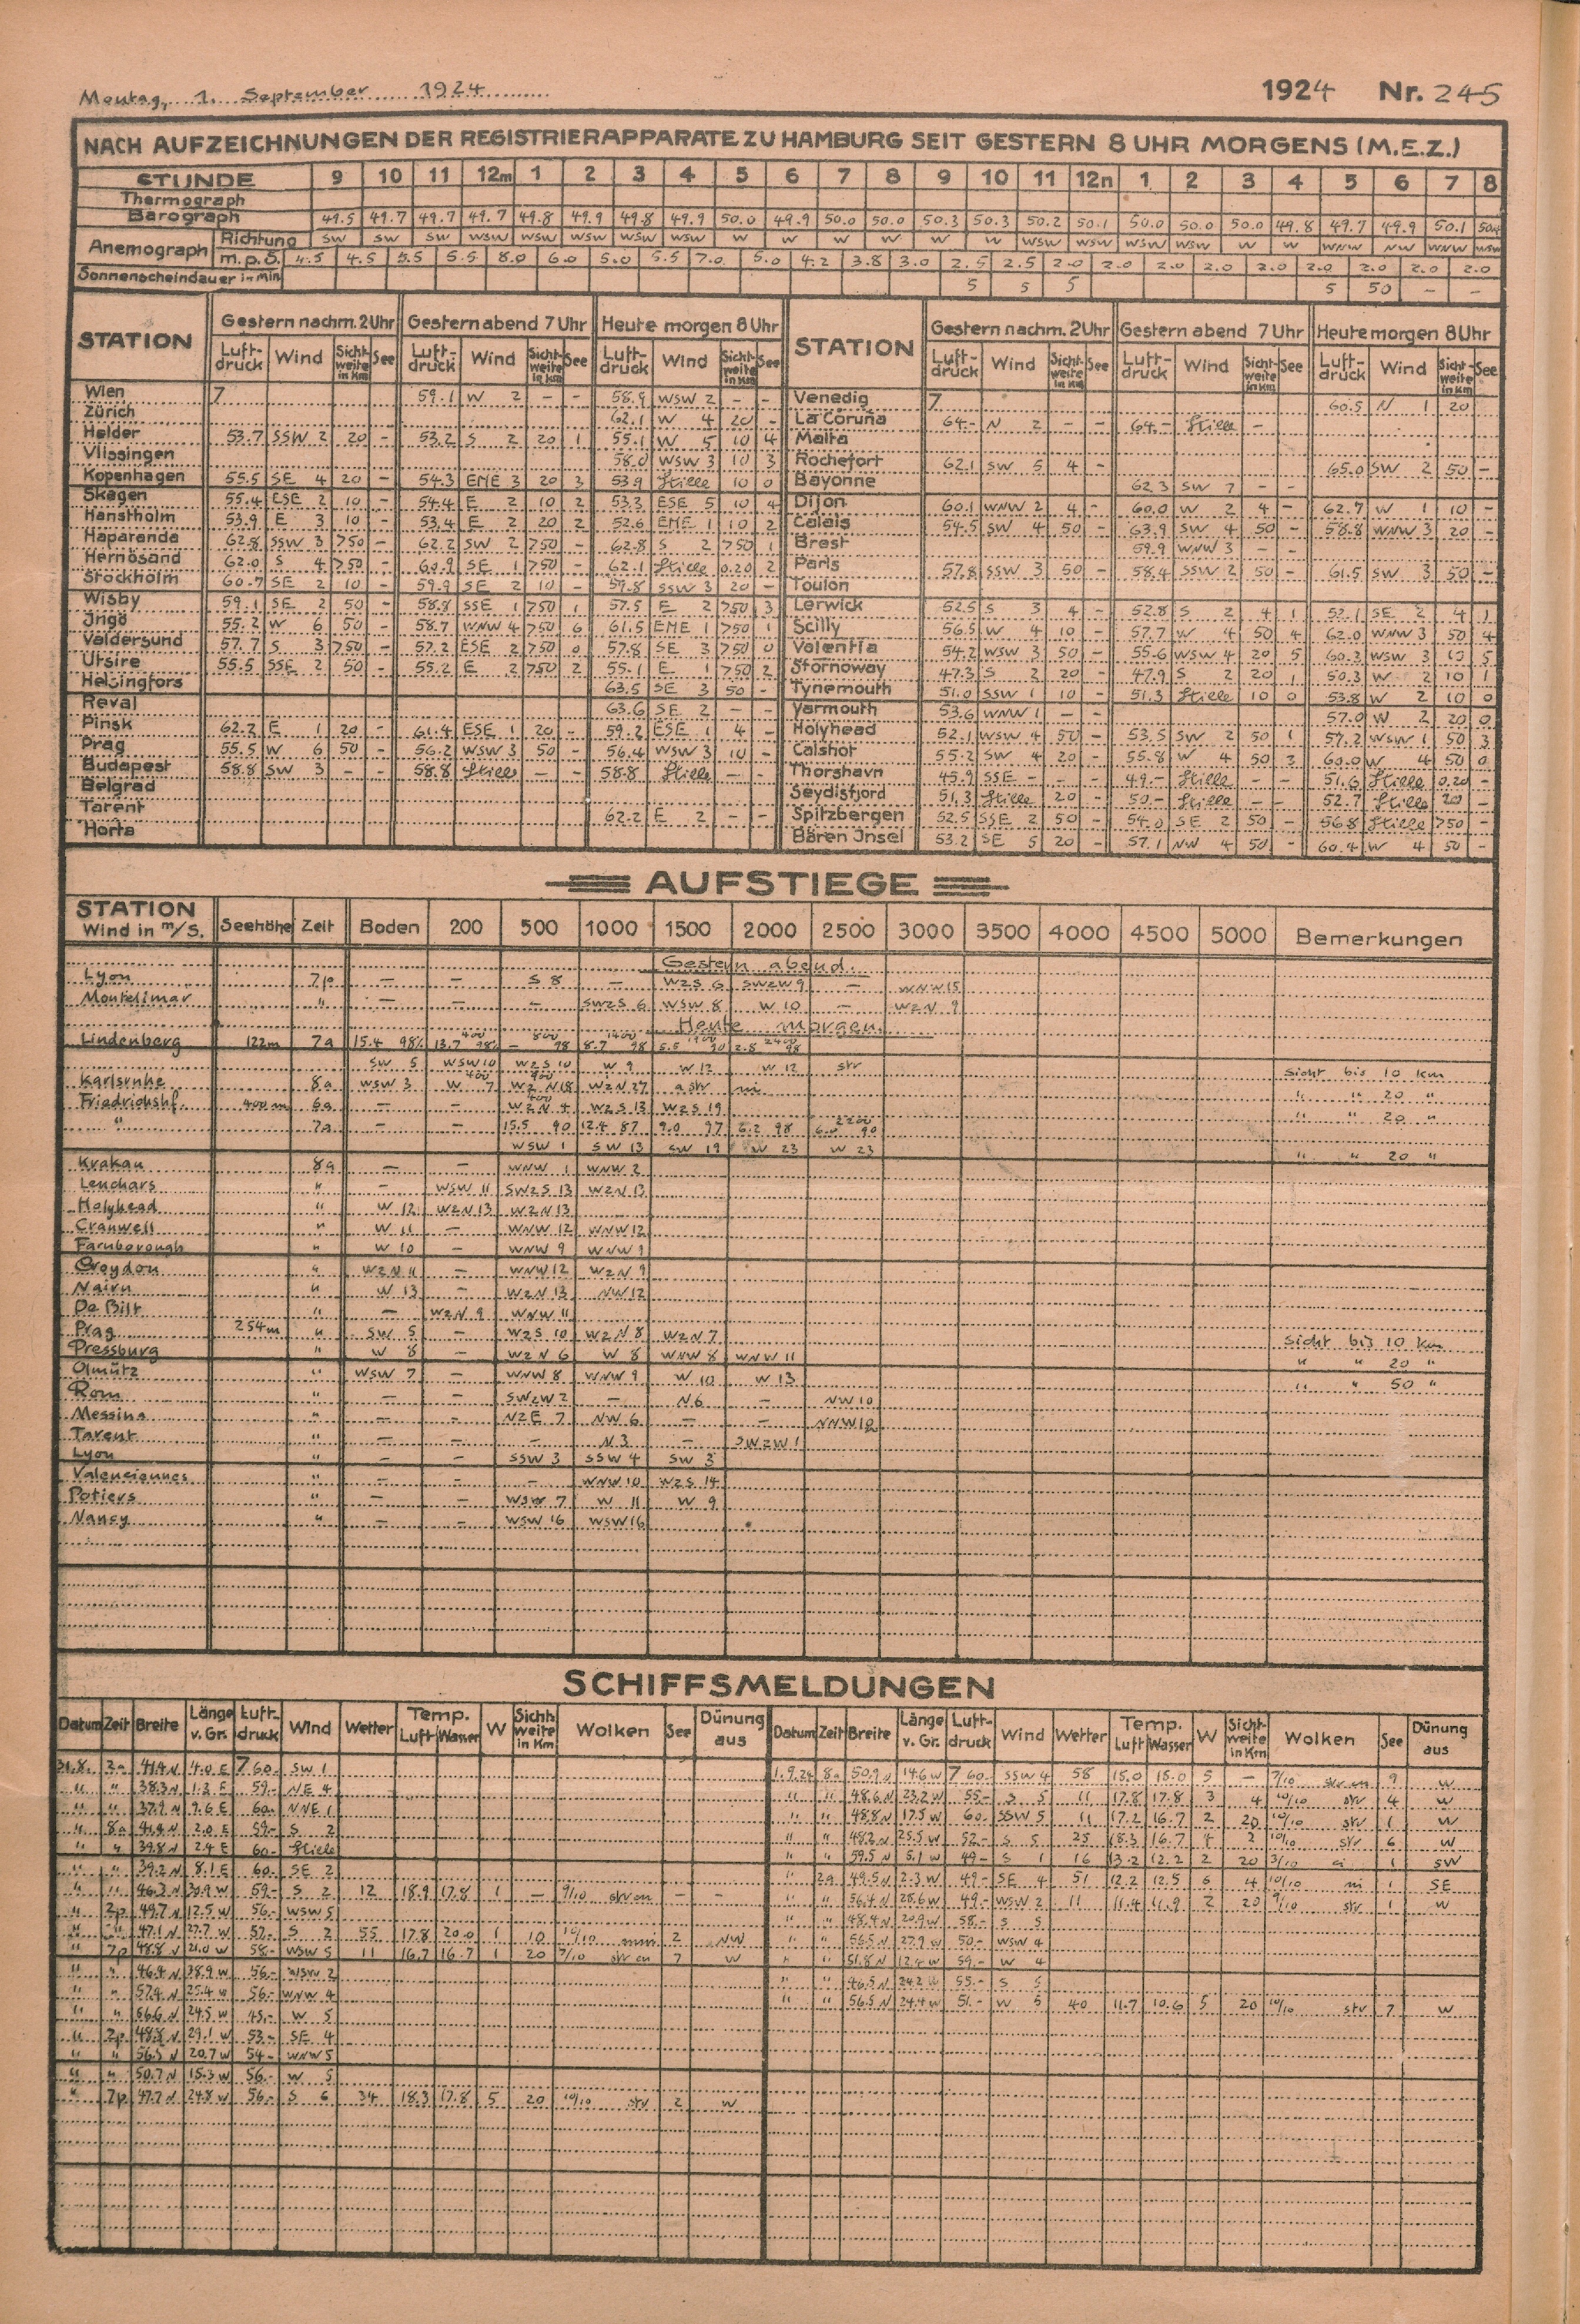 Montag, 1. September 1924 1924 Nr. 245
NACH AUFZEICHNUNGEN DER REGISTRIERAPPARATE ZU HAMBURG SEIT GESTERN 8 UHR MORGENS (M.E.Z.)
STUNDE 9 10 11 12m 1 2 3 4 5 6 7 8 9 10 11 12n 1 2 3 4 5 6 7 8
Thermograph
Barograph 49.5 49.7 49.7 49.7 49.8 49.9 49.8 49.9 50.0 49.9 50.0 50.0 50.3 50.3 50.2 50.1 50.0 50.0 50.0 49.8 49.7 49.9 50.1
Anemograph Richtung SW SW SW WSW WSW WSW WSW WSW W W W W W W WSW WSW WSW WSW W W WNW NW WNW WSW
m.p.S. 4.5 4.5 5.5 5.5 8.0 6.0 5.0 5.5 7.0 5.0 4.2 3.8 3.0 2.5 2.5 2.0 2.0 2.0 2.0 2.0 2.0 2.0 2.0 2.0
Sonnenscheindauer in Min. 5 5 5 5 50 - -
STATION Gestern nachm. 2 Uhr Gestern abend 7 Uhr Heute morgen 8 Uhr STATION Gestern nachm. 2 Uhr Gestern abend 7 Uhr Heute morgen 8 Uhr
Luft-druck Wind Sicht-weite in Km See Luft-druck Wind Sicht-weite in Km See Luft-druck Wind Sicht-weite in Km See Luft-druck Wind Sicht-weite in Km See Luft-druck Wind Sicht-weite in Km See Luft-druck Wind Sicht-weite in Km See
Wien 7 59.1 W 2 - - 58.9 WSW 2 - - Venedig 7 60.5 N 1 20
Zürich 62.1 W 4 20 - La Coruña 64.- N 2 - - 64.- Stille -
Helder 53.7 SSW 2 20 - 53.2 S 2 20 1 55.1 W 5 10 4 Malta
Vlissingen 58.0 WSW 3 10 3 Rochefort 62.1 SW 5 4 - 65.0 SW 2 50 -
Kopenhagen 55.5 SE 4 20 - 54.3 EME 3 20 3 53.9 Stille 10 0 Bayonne 62.3 SW 7 - -
Skagen 55.4 ESE 2 10 - 54.4 E 2 10 2 53.3 ESE 5 10 4 Dijon 60.1 WNW 2 4 - 60.0 W 2 4 - 62.7 W 1 10 -
Hanstholm 53.9 E 3 10 - 53.4 E 2 20 2 52.6 EME 1 10 2 Calais 54.5 SW 4 50 - 63.9 SW 4 50 - 58.8 WNW 3 20 -
Haparanda 62.8 SSW 3 >50 - 62.2 SW 2 >50 - 62.8 S 2 >50 1 Brest 59.9 WNW 3 - -
Hernösand 62.0 S 4 >50 - 60.9 SE 1 >50 - 62.1 Stille 0.20 2 Paris 57.8 SSW 3 50 - 58.4 SSW 2 50 - 61.5 SW 3 50 -
Stockholm 60.7 SE 2 10 - 59.9 SE 2 10 - 59.8 SSW 3 20 - Toulon
Wisby 59.1 SE 2 50 - 58.8 SSE 1 >50 1 57.5 E 2 >50 3 Lerwick 52.5 S 3 4 - 52.8 S 2 4 1 52.1 SE 2 4 1
Ingö 55.2 W 6 50 - 58.7 WNW 4 >50 6 61.5 EME 1 >50 1 Scilly 56.5 W 4 10 - 57.7 W 4 50 4 62.0 WNW 3 50 4
Valdersund 57.7 S 3 >50 - 57.2 ESE 2 >50 0 57.8 SE 3 >50 0 Valentia 54.2 WSW 3 50 - 55.6 WSW 4 20 5 60.3 WSW 3 5
Utsire 55.5 SSE 2 50 - 55.2 E 2 >50 2 55.1 E 1 >50 2 Stornoway 47.3 S 2 20 - 47.9 S 2 20 1 50.3 W 2 10 1
Helsingfors 63.5 SE 3 50 - Tynemouth 51.0 SSW 1 10 - 51.3 Stille 10 0 53.8 W 2 10 0
Reval 63.6 SE 2 - - Yarmouth 53.6 WNW 1 - - 57.0 W 2 20 0
Pinsk 62.2 E 1 20 - 61.4 ESE 1 20 - 59.2 ESE 1 4 - Holyhead 52.1 WSW 4 50 - 53.5 SW 2 50 1 57.2 WSW 1 50 3
Prag 55.5 W 6 50 - 56.2 WSW 3 50 - 56.4 WSW 3 10 - Calshot 55.2 SW 4 20 - 55.8 W 4 50 3 60.0 W 4 50 0
Budapest 58.8 SW 3 - - 58.8 Stille - - 58.8 Stille - - Thorshavn 45.9 SSE - - 49.- Stille - - 51.6 Stille 0.20 -
Belgrad Seydisfjord 51.3 Stille 20 - 50.- Stille - - 52.7 Stille 20 -
Tarent 62.2 E 2 - - Spitzbergen 52.5 SSE 2 50 - 54.0 SE 2 50 - 56.8 Stille >50 -
Horta Bären Insel 53.2 SE 5 20 - 57.1 NW 4 50 - 60.4 W 4 50 -
AUFSTIEGE
STATION Wind in m/S. Seehöhe Zeit Boden 200 500 1000 1500 2000 2500 3000 3500 4000 4500 5000 Bemerkungen
Gestern abend.
Lyon 7p - - S 8 - WzS 6 SWzW 9 - WNW 15
Montelimar " - - - SWzS 6 WSW 8 W 10 - WzN 9
Heute morgen.
Lindenberg 122m 7a 15.4 98% 13.7 400 98% - 800 98 8.7 1400 98 5.5 1900 90 2.8 2400 98
SW 5 WSW 10 WzS 10 W 9 W 12 W 12 str Sicht bis 10 Km
Karlsruhe 8a WSW 3 W 400 7 Wz 900 N 18 WzN 27 a str ni " " 20 "
Friedrichshf. 400 m 6a - - WzN 4 WzS 13 WzS 19 " " 20 "
" 7a - - 15.5 90 12.4 87 9.0 97 6.2 98 90
WSW 1 SW 13 SW 19 W 23 W 23 " " 20 "
Krakau 8a - - WNW 1 WNW 2
Leuchars " - WSW 11 SWzS 13 WzN 13
Holyhead " W 12 WzN 13 WzN 13
Cranwell " W 11 - WNW 12 WNW 12
Farnborough " W 10 - WNW 9 WNW 9
Croydon " WzN 11 - WNW 12 WzN 9
Nairn " W 13 - WzN 13 NW 12
De Bilt " - WzN 9 WNW 11
Prag 254m " SW 5 - WzS 10 WzN 8 WzN 7 Sicht bis 10 Km
Pressburg " W 8 - WzN 6 W 8 WNW 8 WNW 11 " " 20 "
Olmütz " WSW 7 - WNW 8 WNW 9 W 10 W 13 " " 50 "
Rom " - - SWzW 2 - N 6 - NW 10
Messina " - - NzE 7 NW 6 - - NNW 10
Tarent " - - - N 3 - SWzW 1
Lyon " - - SSW 3 SSW 4 SW 3
Valenciennes " - - - WNW 10 WzS 14
Potiers " - - WSW 7 W 11 W 9
Nancy " - - WSW 16 WSW 16
SCHIFFSMELDUNGEN
Datum Zeit Breite Länge v. Gr. Luft-druck Wind Wetter Temp. Luft Wasser W Sicht-weite in Km Wolken See Dünung aus Datum Zeit Breite Länge v. Gr. Luft-druck Wind Wetter Temp. Luft Wasser W Sicht-weite in Km Wolken See Dünung aus
31.8. 2a 41.4 N 4.0 E 7 60.- SW 1 1.9.24 8a 50.9 N 14.6 W 7 60.- SSW 4 58 15.0 15.0 5 - 7/10 str cu 9 W
" " 38.3 N 1.3 E 59.- NE 4 " " 48.6 N 23.2 W 55.- S 5 11 17.8 17.8 3 4 10/10 str 4 W
" " 37.9 N 9.6 E 60.- NNE 1 " " 48.8 N 17.5 W 60.- SSW 5 11 17.2 16.7 2 20 10/10 str 1 W
" 8a 41.4 N 2.0 E 59.- S 2 " " 48.2 N 25.5 W 52.- S 5 25 18.3 16.7 2 10/10 str 6 W
" " 39.8 N 2.4 E 60.- Stille " " 59.5 N 5.1 W 49.- S 1 16 13.2 12.2 2 20 3/10 ci 1 SW
" " 39.2 N 8.1 E 60.- SE 2 " 2a 49.5 N 2.3 W 49.- SE 4 51 12.2 12.5 6 4 10/10 ni 1 SE
" " 46.3 N 30.9 W 59.- S 2 12 18.9 17.8 1 - 9/10 str cu - - " " 56.4 N 28.6 W 49.- WSW 2 11 11.4 11.9 2 20 9/10 str 1 W
" 2p 49.7 N 12.5 W 56.- WSW 5 " " 48.4 N 20.9 W 58.- S 5
" " 47.1 N 27.7 W 57.- S 2 55 17.8 20.0 1 10 10/10 2 NW " " 56.5 N 27.9 W 50.- WSW 4
" 7p 48.8 N 21.0 W 58.- WSW 5 11 16.7 16.7 1 20 7/10 str cu 7 W " " 51.8 N 12.4 W 59.- W 4
" " 46.4 N 38.9 W 56.- WSW 2 " " 46.5 N 24.2 W 55.- S 5
" " 57.4 N 25.4 W 56.- WNW 4 " " 56.5 N 24.4 W 51.- W 5 40 11.7 10.6 5 20 10/10 str 7 W
" " 66.6 N 24.5 W 45.- W 5
" 2p 48.8 N 29.1 W 53.- SE 4
" " 56.5 N 20.7 W 54.- WNW 5
" " 50.7 N 15.3 W 56.- W 5
" 7p 47.7 N 24.8 W 56.- S 6 34 18.3 17.8 5 20 10/10 str 2 W